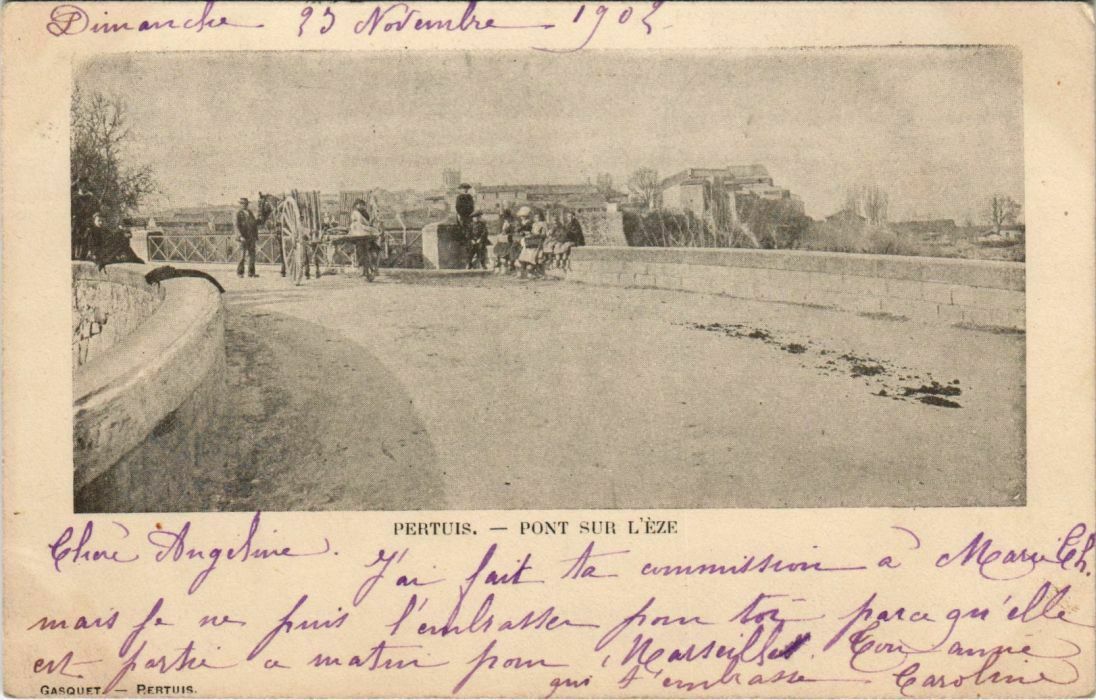 Dimanche 23 Novembre 1902
PERTUIS. — PONT SUR L'ÈZE
Chère Angeline. J'ai fait ta commission à Marie Ch.
mais je ne puis l'embrasser pour toi parce qu'elle
est partie ce matin pour Marseille. Ton amie
qui t'embrasse Caroline
GASQUET. — PERTUIS.